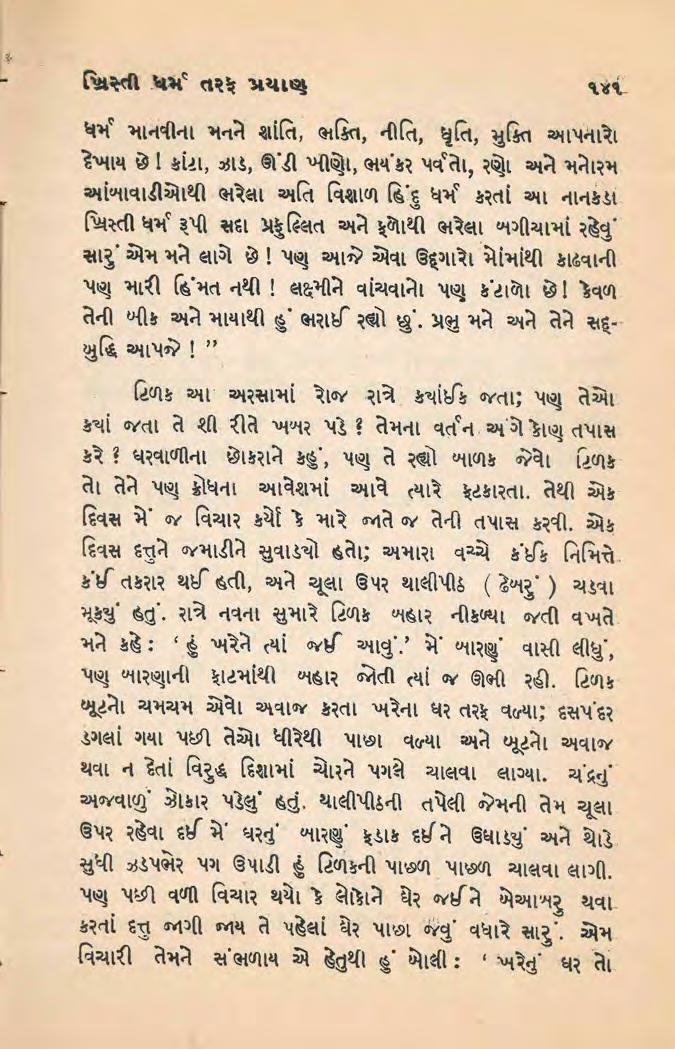 ખ્રિસ્તી ધર્મ તરફ પ્રયાણ ૧૪૧
ધર્મ માનવીના મનને શાંતિ, ભક્તિ, નીતિ, ધૃતિ, મુક્તિ આપનારો
દેખાય છે! કાંટા, ઝાડ, ઊંડી ખીણો, ભયંકર પર્વતો, રણો અને મનોરમ
આંબાવાડીઓથી ભરેલા અતિ વિશાળ હિંદુ ધર્મ કરતાં આ નાનકડા
ખ્રિસ્તી ધર્મ રૂપી સદા પ્રફુલ્લિત અને ફળોથી ભરેલા બગીચામાં રહેવું
સારું એમ મને લાગે છે! પણ આજે એવા ઉદ્ગારો મોંમાંથી કાઢવાની
પણ મારી હિંમત નથી! લક્ષ્મીને વાંચવાનો પણ કંટાળો છે! કેવળ
તેની બીક અને માયાથી હું ભરાઈ રહ્યો છું. પ્રભુ મને અને તેને સદ્-
બુદ્ધિ આપજે!”
ટિળક આ અરસામાં રોજ રાત્રે કયાંઈક જતા; પણ તેઓ
કયાં જતા તે શી રીતે ખબર પડે? તેમના વર્તન અંગે કોણ તપાસ
કરે? ઘરવાળીના છોકરાને કહું, પણ તે રહ્યો બાળક જેવો ટિળક
તો તેને પણ ક્રોધના આવેશમાં આવે ત્યારે ફટકારતા. તેથી એક
દિવસ મેં જ વિચાર કર્યો કે મારે જાતે જ તેની તપાસ કરવી. એક
દિવસ દત્તુને જમાડીને સુવાડયો હતો; અમારા વચ્ચે કંઈક નિમિત્તે
કંઈ તકરાર થઈ હતી, અને ચૂલા ઉપર થાલીપીઠ (ઢેબરું) ચડવા
મૂકયું હતું. રાત્રે નવના સુમારે ટિળક બહાર નીકળ્યા જતી વખતે
મને કહે: ‘હું ખરેને ત્યાં જઈ આવું.’ મેં બારણું વાસી લીધું,
પણ બારણાની ફાટમાંથી બહાર જોતી ત્યાં જ ઊભી રહી. ટિળક
બૂટનો ચમચમ એવો અવાજ કરતા ખરેના ઘર તરફ વળ્યા; દસપંદર
ડગલાં ગયા પછી તેઓ ધીરેથી પાછા વળ્યા અને બૂટનો અવાજ
થવા ન દેતાં વિરુદ્ધ દિશામાં ચોરને પગલે ચાલવા લાગ્યા. ચંદ્રનું
અજવાળું ઝોકાર પડેલું હતું. થાલીપીઠની તપેલી જેમની તેમ ચૂલા
ઉપર રહેવા દઈ મેં ઘરનું બારણું ફડાક દઈને ઉઘાડયું અને થોડે
સુધી ઝડપભેર પગ ઉપાડી હું ટિળકની પાછળ પાછળ ચાલવા લાગી.
પણ પછી વળી વિચાર થયો કે લોકોને ઘેર જઈને બેઆબરુ થવા
કરતાં દત્તુ જાગી જાય તે પહેલાં ઘેર પાછા જવું વધારે સારું. એમ
વિચારી તેમને સંભળાય એ હેતુથી હું બોલી: ‘ખરેનું ઘર તો